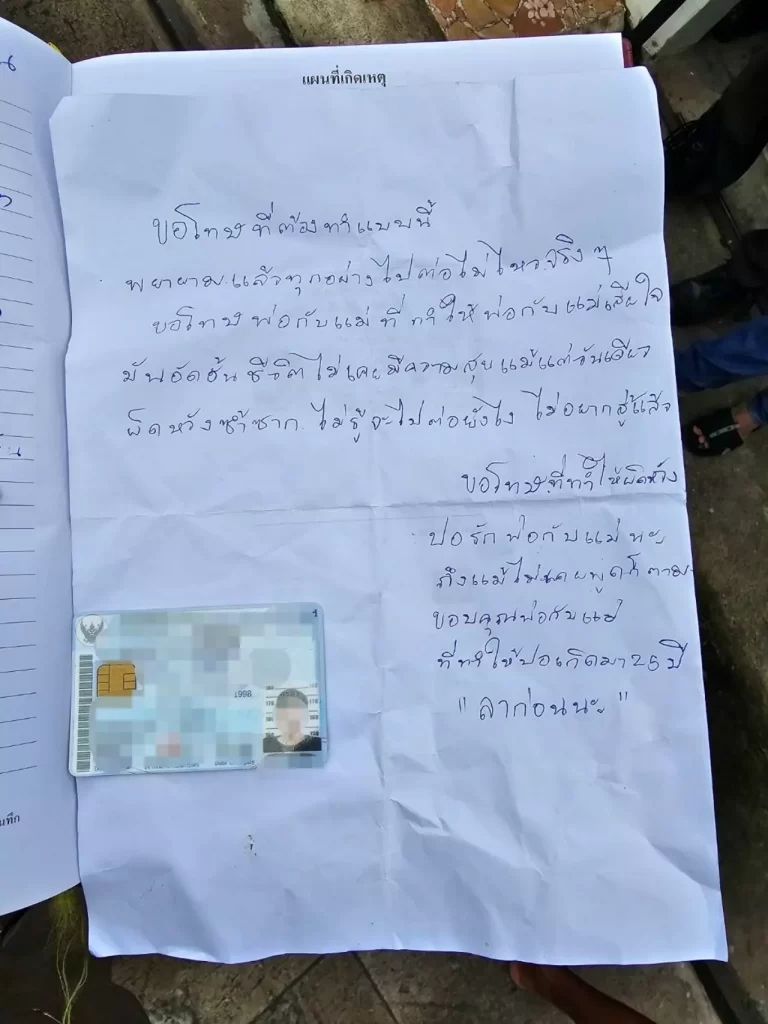 แผนที่เกิดเหตุ
ขอโทษที่ต้องทำแบบนี้
พยายามแล้วทุกอย่างไปต่อไม่ไหวจริงๆ
ขอโทษพ่อกับแม่ที่ทำให้พ่อกับแม่เสียใจ
มันอัดอั้นชีวิตไม่เคยมีความสุขแม้แต่วันเดียว
ผิดหวังซ้ำซาก ไม่รู้จะไปต่อยังไง ไม่อยากสู้แล้ว
ขอโทษที่ทำให้ผิดหวัง
ปอรักพ่อกับแม่นะ
ถึงแม้ไม่เคยพูดก็ตาม
ขอบคุณพ่อกับแม่
ที่ทำให้ปอเกิดมา 25 ปี
"ลาก่อนนะ"
1998